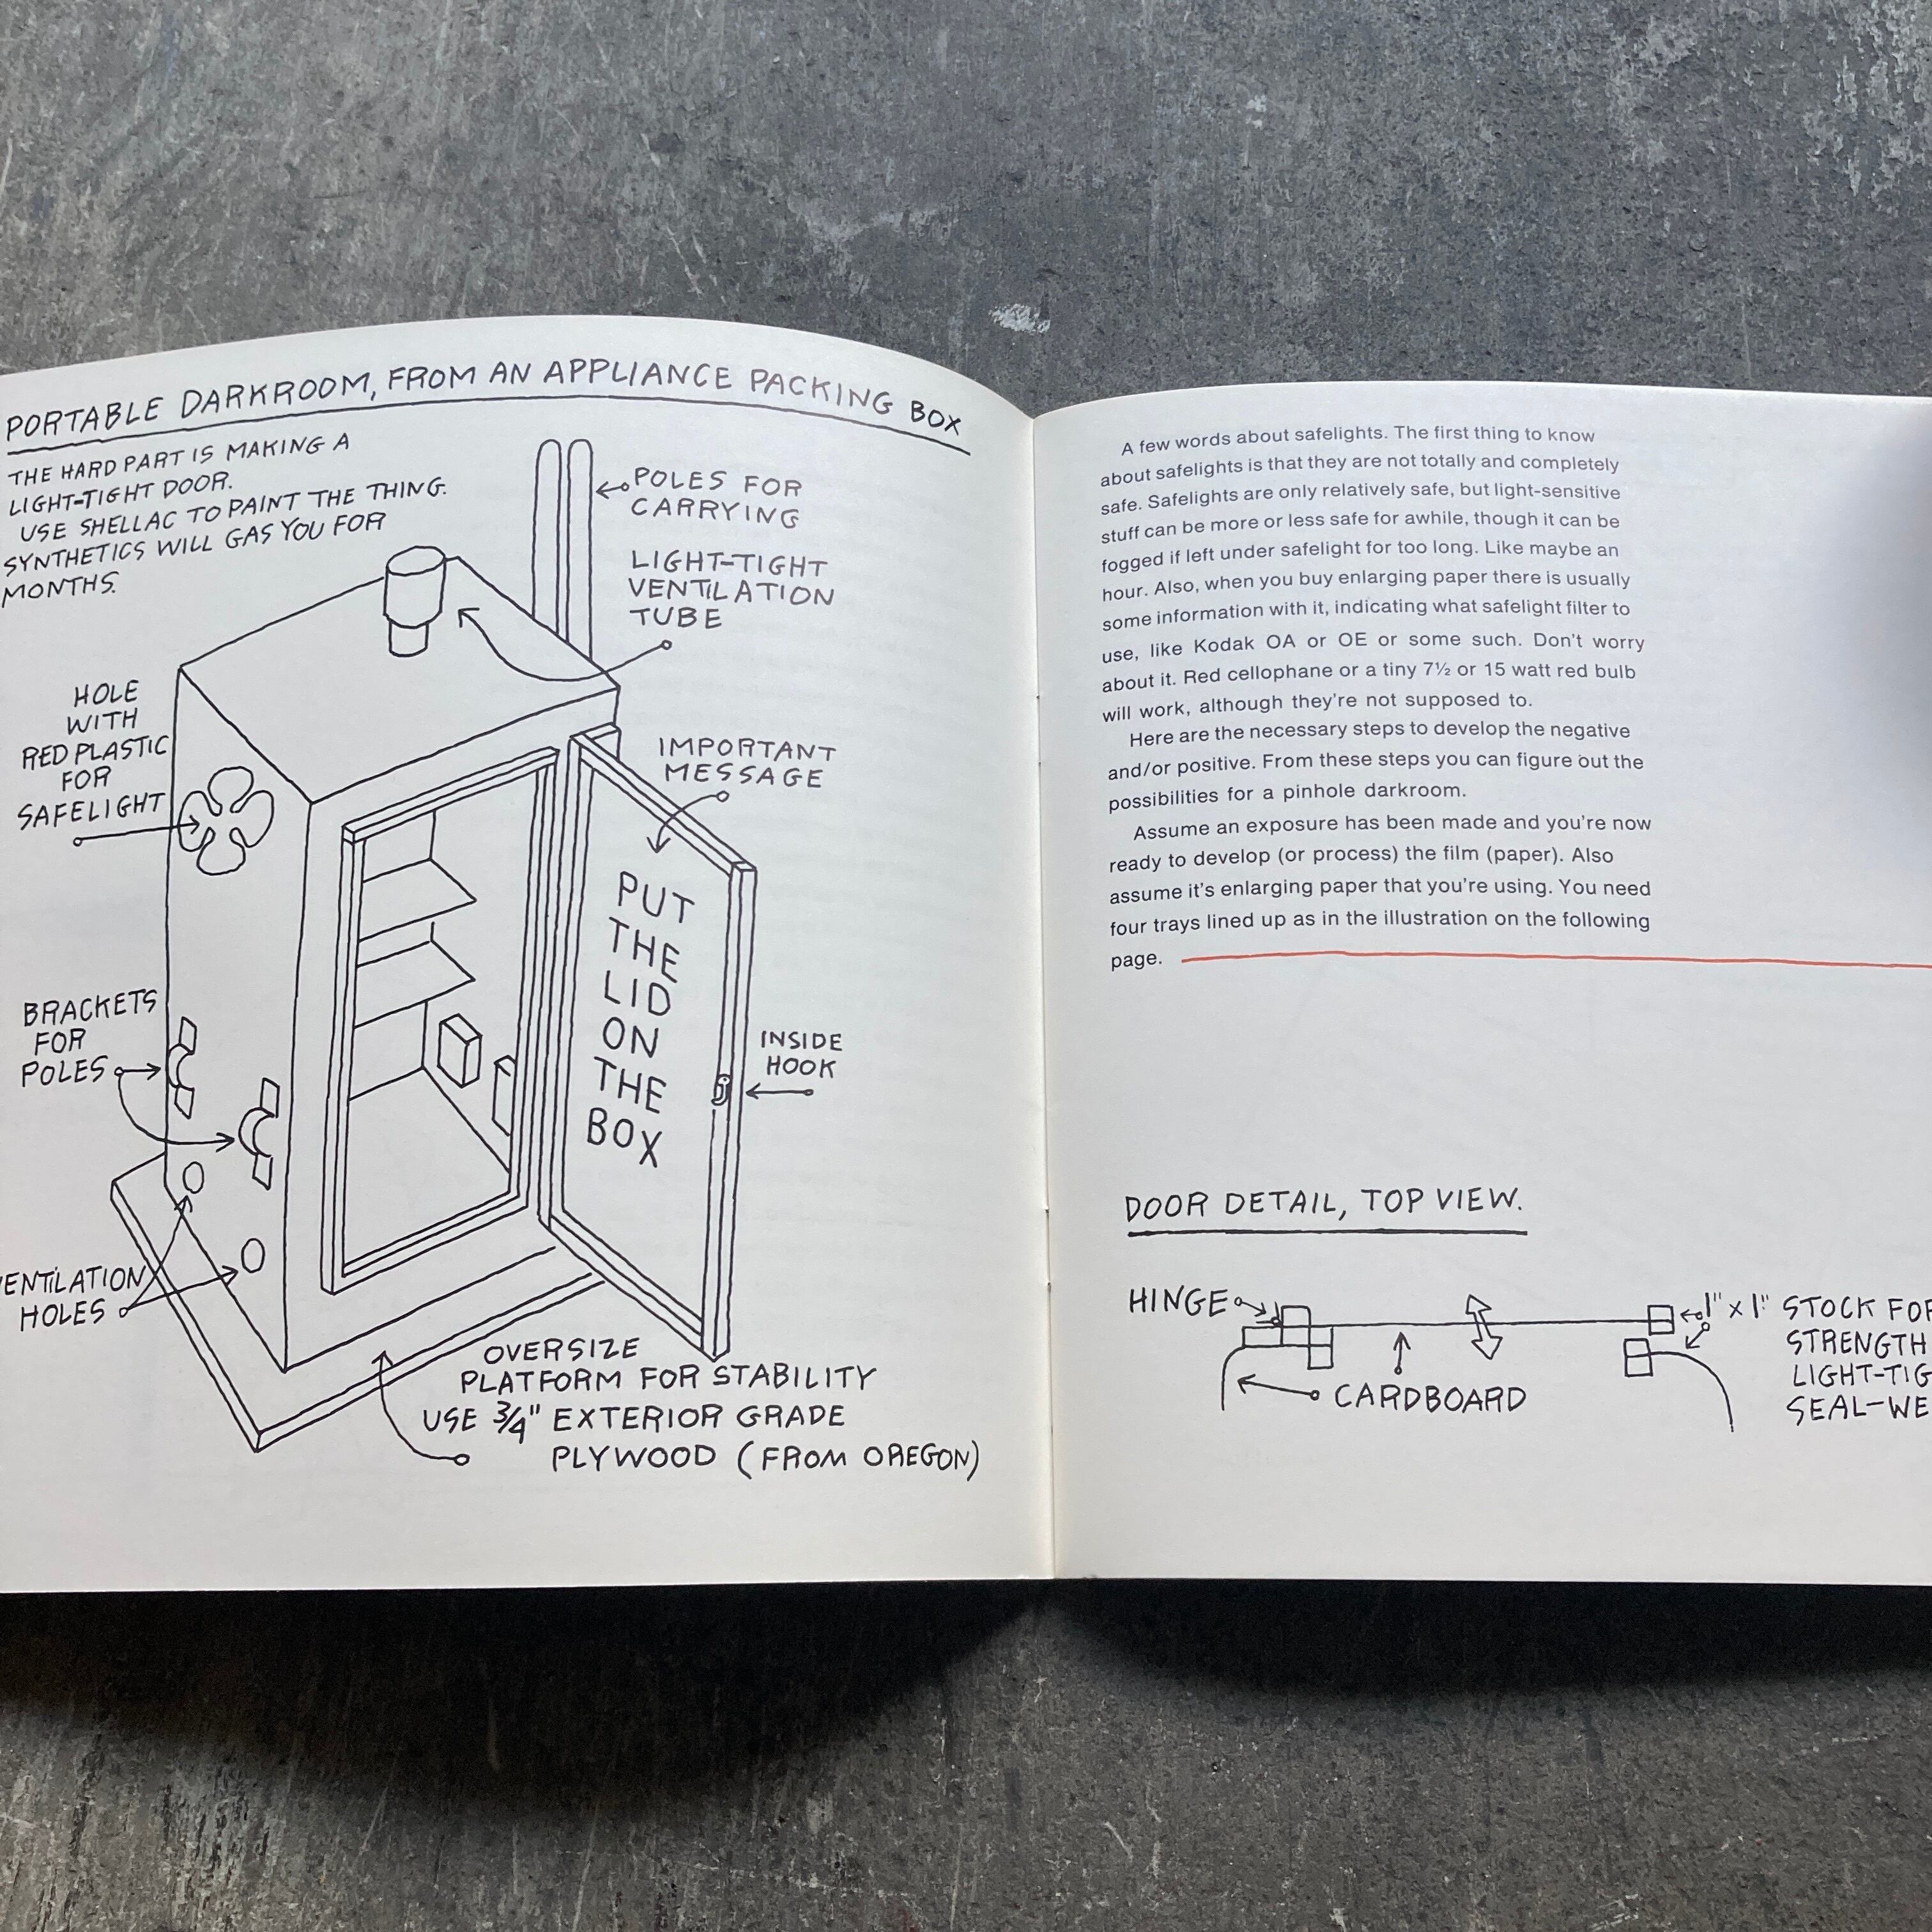 PORTABLE DARKROOM, FROM AN APPLIANCE PACKING BOX
THE HARD PART IS MAKING A
LIGHT-TIGHT DOOR.
USE SHELLAC TO PAINT THE THING.
SYNTHETICS WILL GAS YOU FOR
MONTHS.
POLES FOR
CARRYING
LIGHT-TIGHT
VENTILATION
TUBE
HOLE
WITH
RED PLASTIC
FOR
SAFELIGHT
IMPORTANT
MESSAGE
PUT
THE
LID
ON
THE
BOX
BRACKETS
FOR
POLES
INSIDE
HOOK
ENTILATION
HOLES
OVERSIZE
PLATFORM FOR STABILITY
USE 3/4" EXTERIOR GRADE
PLYWOOD (FROM OREGON)
A few words about safelights. The first thing to know
about safelights is that they are not totally and completely
safe. Safelights are only relatively safe, but light-sensitive
stuff can be more or less safe for awhile, though it can be
fogged if left under safelight for too long. Like maybe an
hour. Also, when you buy enlarging paper there is usually
some information with it, indicating what safelight filter to
use, like Kodak OA or OE or some such. Don't worry
about it. Red cellophane or a tiny 7½ or 15 watt red bulb
will work, although they're not supposed to.
Here are the necessary steps to develop the negative
and/or positive. From these steps you can figure out the
possibilities for a pinhole darkroom.
Assume an exposure has been made and you're now
ready to develop (or process) the film (paper). Also
assume it's enlarging paper that you're using. You need
four trays lined up as in the illustration on the following
page.
DOOR DETAIL, TOP VIEW.
HINGE
1" x 1" STOCK FOR
STRENGTH
LIGHT-TIG
SEAL-WE
CARDBOARD